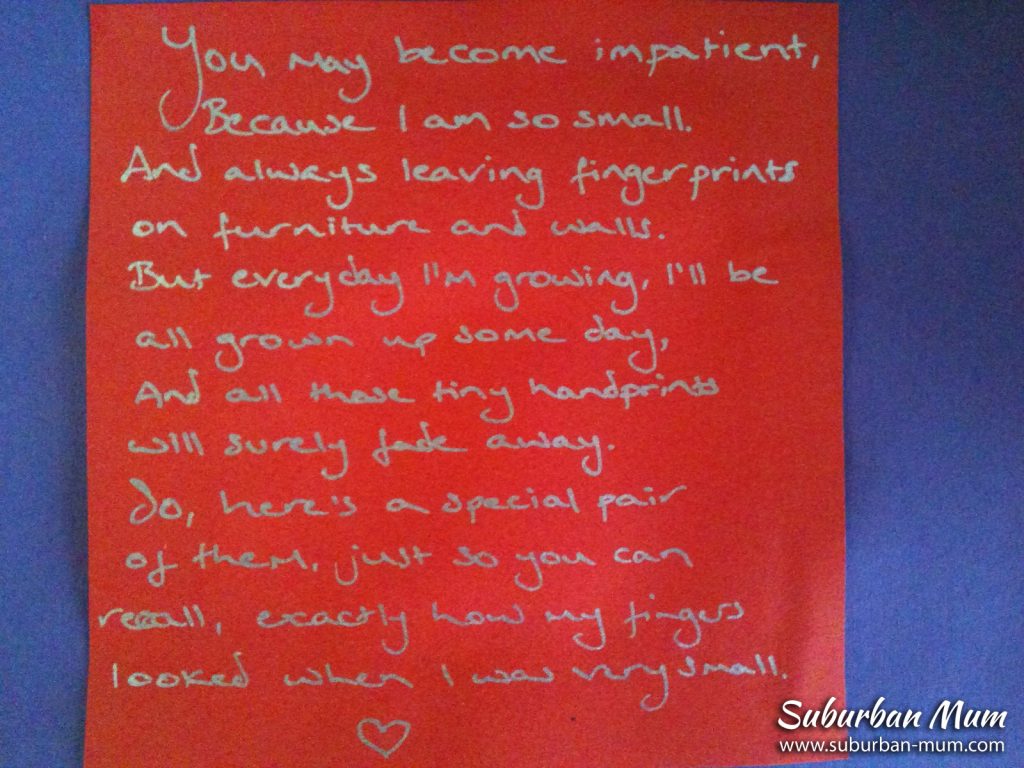 You may become impatient,
Because I am so small.
And always leaving fingerprints
on furniture and walls.
But everyday I'm growing, I'll be
all grown up some day,
And all those tiny handprints
will surely fade away.
So, here's a special pair
of them, just so you can
recall, exactly how my fingers
looked when I was very small.
Suburban Mum
www.suburban-mum.com